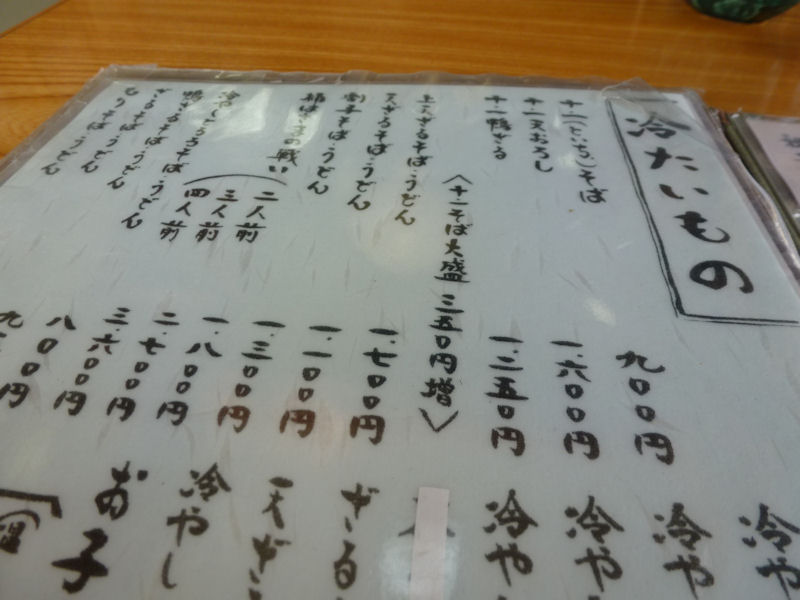 冷たいもの
十一(といち)そば 九〇〇円
十一天おろし 一、六〇〇円
十一鴨ざる 一、三五〇円
〈十一そば大盛 三五〇円増〉
上天ざるそば・うどん 一、七〇〇円
天ざるそば・うどん 一、一〇〇円
割子そば・うどん 一、三〇〇円
桶はざまの戦い
二人前 一、八〇〇円
三人前 二、七〇〇円
四人前 三、六〇〇円
冷やしとろろそば・うどん 八〇〇円
鴨ざるそば・うどん
ざるそば・うどん
もりそば・うどん
冷や
冷や
冷や
冷や
ざる
天ざ
冷やし
お子